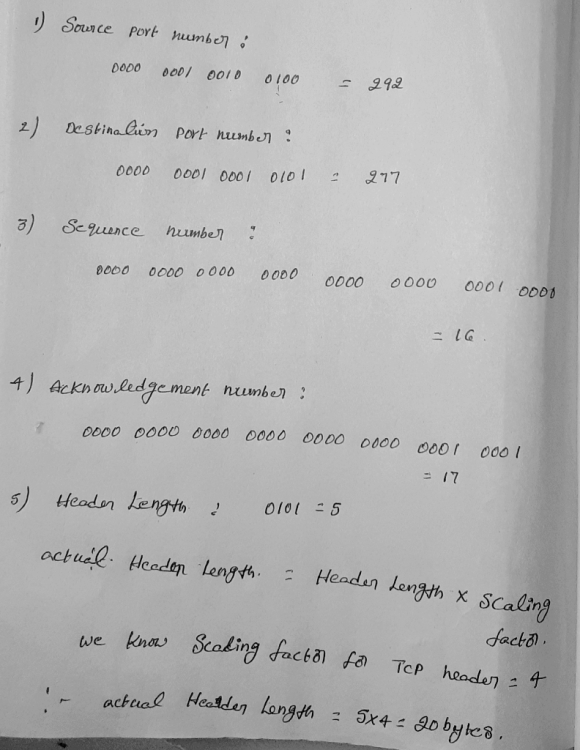 1) Source port number :
0000 0001 0010 0100 = 292
2) Destination port number :
0000 0001 0001 0101 = 277
3) Sequence number :
0000 0000 0000 0000 0000 0000 0001 0000
= 16.
4) Acknowledgement number :
0000 0000 0000 0000 0000 0000 0001 0001
= 17
5) Header Length : 0101 = 5
actual. Header Length. = Header Length x Scaling
factor.
we know Scading factor for TCP header = 4
:- actual Header Length = 5x4 = 20 bytes.